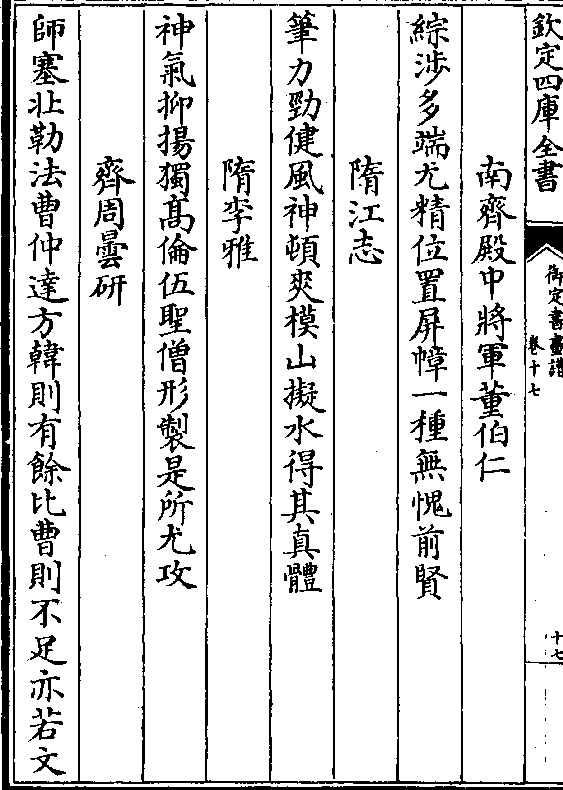 欽定四庫全書
御定書畫譜
卷十七
十七
南齊殿中將軍董伯仁
綜涉多端尤精位置屏幛一種無愧前賢
隋江志
筆力勁健風神頓爽模山擬水得其真體
隋李雅
神氣抑揚獨髙倫伍聖僧形製是所尤攻
齊周曇研
師塞北勒法曹仲達方韓則有餘比曹則不足亦若文